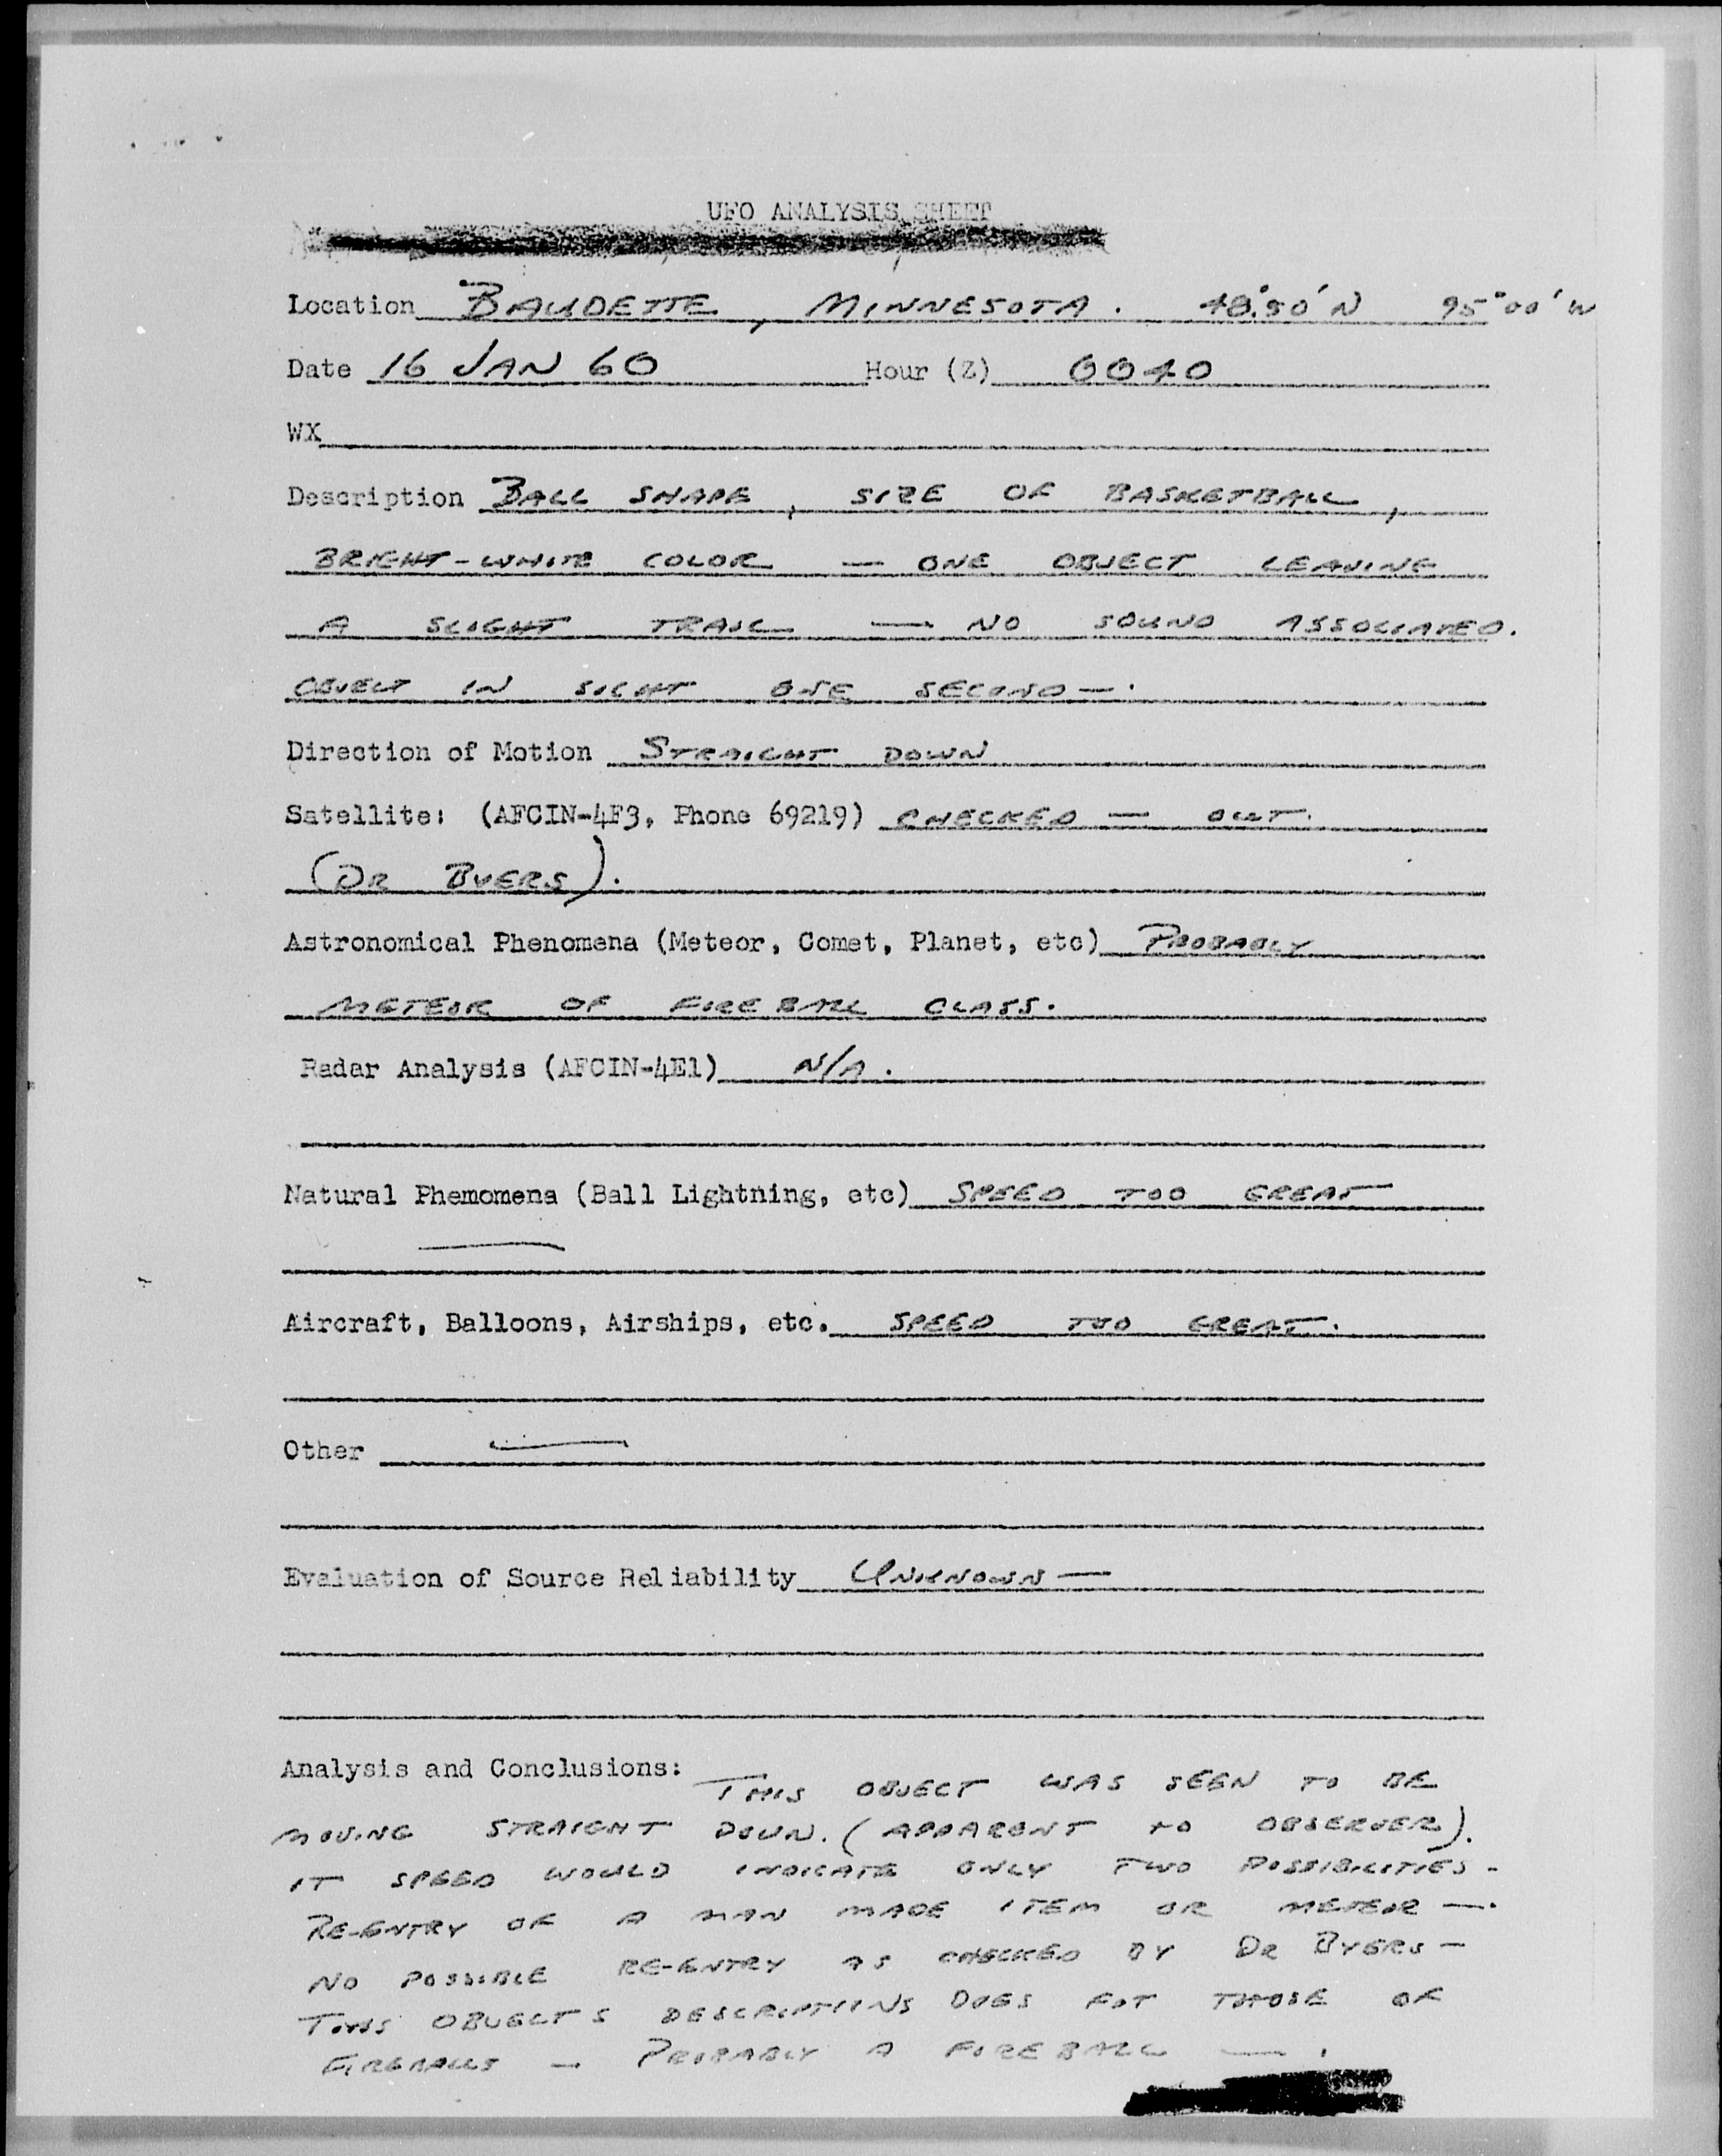 UFO ANALYSIS SHEET
Location BAUDETTE, MINNESOTA. 48°50'N 95°00'W
Date 16 JAN 60 Hour (Z) 0040
WX
Description BALL SHAPE, SIZE OF BASKETBALL,
BRIGHT-WHITE COLOR — ONE OBJECT LEAVING
A SLIGHT TRAIL — NO SOUND ASSOCIATED.
OBJECT IN SIGHT ONE SECOND —.
Direction of Motion STRAIGHT DOWN
Satellite: (AFCIN-4F3, Phone 69219) CHECKED — OUT.
(DR BYERS).
Astronomical Phenomena (Meteor, Comet, Planet, etc) PROBABLY
METEOR OF FIREBALL CLASS.
Radar Analysis (AFCIN-4E1) N/A.
Natural Phemomena (Ball Lightning, etc) SPEED TOO GREAT
—
Aircraft, Balloons, Airships, etc. SPEED TOO GREAT.
Other —
Evaluation of Source Reliability UNKNOWN —
Analysis and Conclusions: THIS OBJECT WAS SEEN TO BE
MOVING STRAIGHT DOWN. (APPARENT TO OBSERVER).
IT SPEED WOULD INDICATE ONLY TWO POSSIBILITIES -
RE-ENTRY OF A MAN MADE ITEM OR METEOR —.
NO POSSIBLE RE-ENTRY AS CHECKED BY DR BYERS —
THIS OBJECTS DESCRIPTIONS DOES FIT THOSE OF
FIREBALLS — PROBABLY A FIREBALL — .